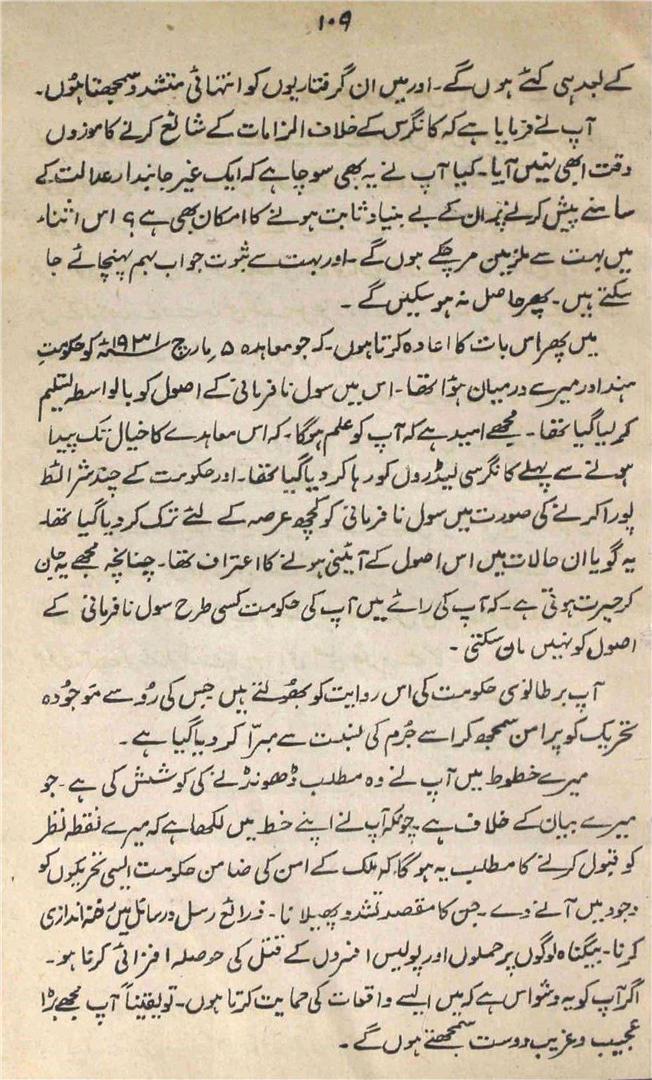 ۱۰۹
کے بعد ہی کئے ہوں گے۔ اور میں ان گرفتاریوں کو انتہائی متشدد سمجھتا ہُوں۔
آپ نے فرمایا ہے کہ کانگرس کے خلاف الزامات کے شائع کرنے کا موزوں
وقت ابھی نہیں آیا۔ کیا آپ نے یہ بھی سوچا ہے کہ ایک غیر جانبدار عدالت کے
سامنے پیش کرنے پر ان کے بے بنیاد ثابت ہونے کا امکان بھی ہے؟ اس اثناء
میں بہت سے ملزمین مر چکے ہوں گے۔ اور بہت سے ثبوت جواب بہم پہنچائے جا
سکتے ہیں۔ پھر حاصل نہ ہو سکیں گے۔
میں پھر اس بات کا اعادہ کرتا ہوں۔ کہ جو معاہدہ ۵ مارچ ۱۹۳۱ء کو حکومتِ
ہند اور میرے درمیان ہؤا تھا۔ اس میں سول نافرمانی کے اصول کو بالواسطہ تسلیم
کر لیا گیا تھا۔ مجھے امید ہے کہ آپ کو علم ہوگا۔ کہ اس معاہدے کا خیال تک پیدا
ہونے سے پہلے کانگرسی لیڈروں کو رہا کر دیا گیا تھا۔ اور حکومت کے چند شرائط
پورا کرنے کی صورت میں سول نافرمانی کو کچھ عرصہ کے لئے ترک کر دیا گیا تھا۔
یہ گویا ان حالات میں اس اصول کے آئینی ہونے کا اعتراف تھا۔ چنانچہ مجھے یہ جان
کر حیرت ہوتی ہے۔ کہ آپ کی رائے میں آپ کی حکومت کسی طرح سول نافرمانی کے
اصول کو نہیں مان سکتی۔
آپ برطانوی حکومت کی اس روایت کو بھُولتے ہیں جس کی رُو سے موجُودہ
تحریک کو پرامن سمجھ کر اسے جُرم کی نسبت سے مبرّا کر دیا گیا ہے۔
میرے خطوط میں آپ نے وہ مطلب ڈھونڈنے کی کوشش کی ہے۔ جو
میرے بیان کے خلاف ہے۔ چونکہ آپ نے اپنے خط میں لکھا ہے کہ میرے نقطہ نظر
کو قبول کرنے کا مطلب یہ ہوگا۔ کہ ملک کے امن کی ضامن حکومت ایسی تحریکوں کو
وجود میں آنے دے۔ جن کا مقصد تشدد پھیلانا۔ ذرائع رسل و رسائل میں رخنہ اندازی
کرنا۔ بیگناہ لوگوں پر حملوں اور پولیس افسروں کے قتل کی حوصلہ افزائی کرنا ہو۔
اگر آپ کو یہ وشواس ہے کہ میں ایسے واقعات کی حمایت کرتا ہوں۔ تو یقیناً آپ مجھے بڑا
عجیب و غریب دوست سمجھتے ہوں گے۔